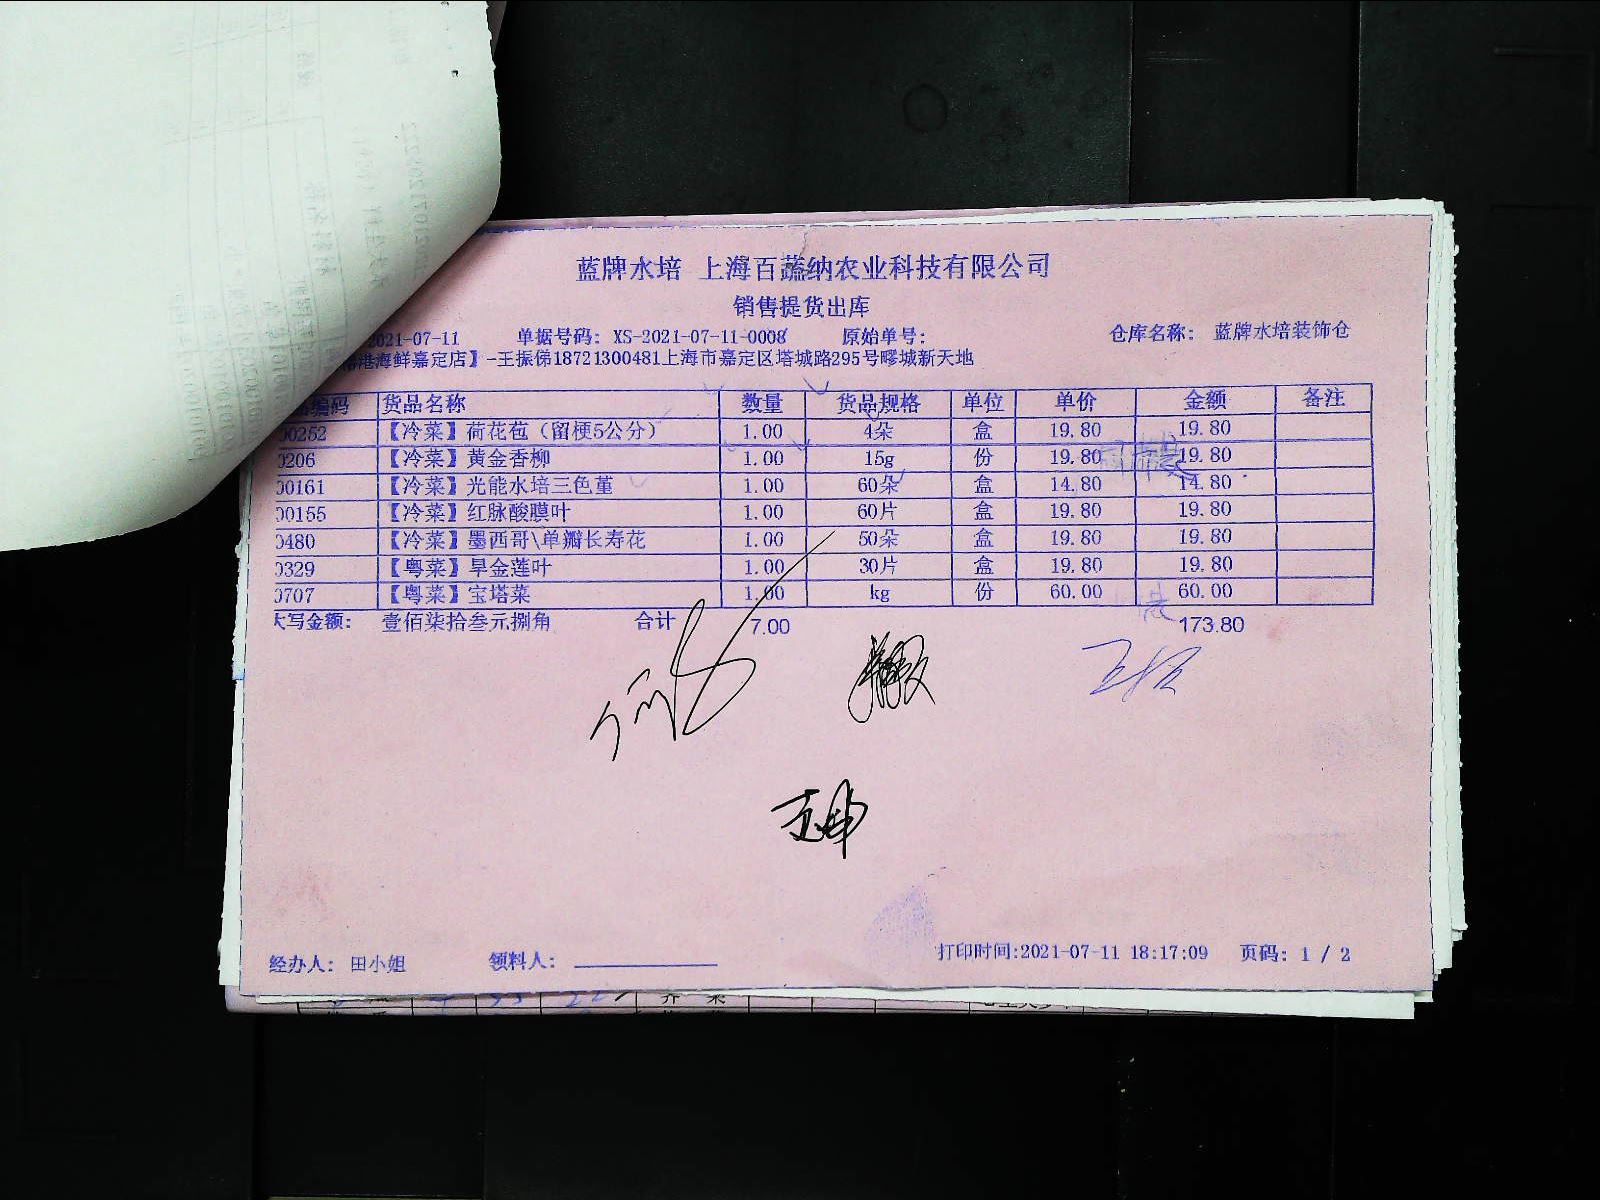 蓝牌水培 上海百蔬纳农业科技有限公司
销售提货出库
2021-07-11 单据号码: XS-2021-07-11-0008 原始单号: 仓库名称: 蓝牌水培装饰仓
港海鲜嘉定店】-王振俤18721300481上海市嘉定区塔城路295号疁城新天地
编码 货品名称 数量 货品规格 单位 单价 金额 备注
00252 【冷菜】荷花苞（留梗5公分） 1.00 4朵 盒 19.80 19.80
0206 【冷菜】黄金香柳 1.00 15g 份 19.80 19.80
00161 【冷菜】光能水培三色堇 1.00 60朵 盒 14.80 14.80
00155 【冷菜】红脉酸膜叶 1.00 60片 盒 19.80 19.80
0480 【冷菜】墨西哥\单瓣长寿花 1.00 50朵 盒 19.80 19.80
0329 【粤菜】旱金莲叶 1.00 30片 盒 19.80 19.80
0707 【粤菜】宝塔菜 1.00 kg 份 60.00 60.00
大写金额: 壹佰柒拾叁元捌角 合计 7.00 173.80
经办人: 田小姐 领料人: 打印时间:2021-07-11 18:17:09 页码: 1 / 2